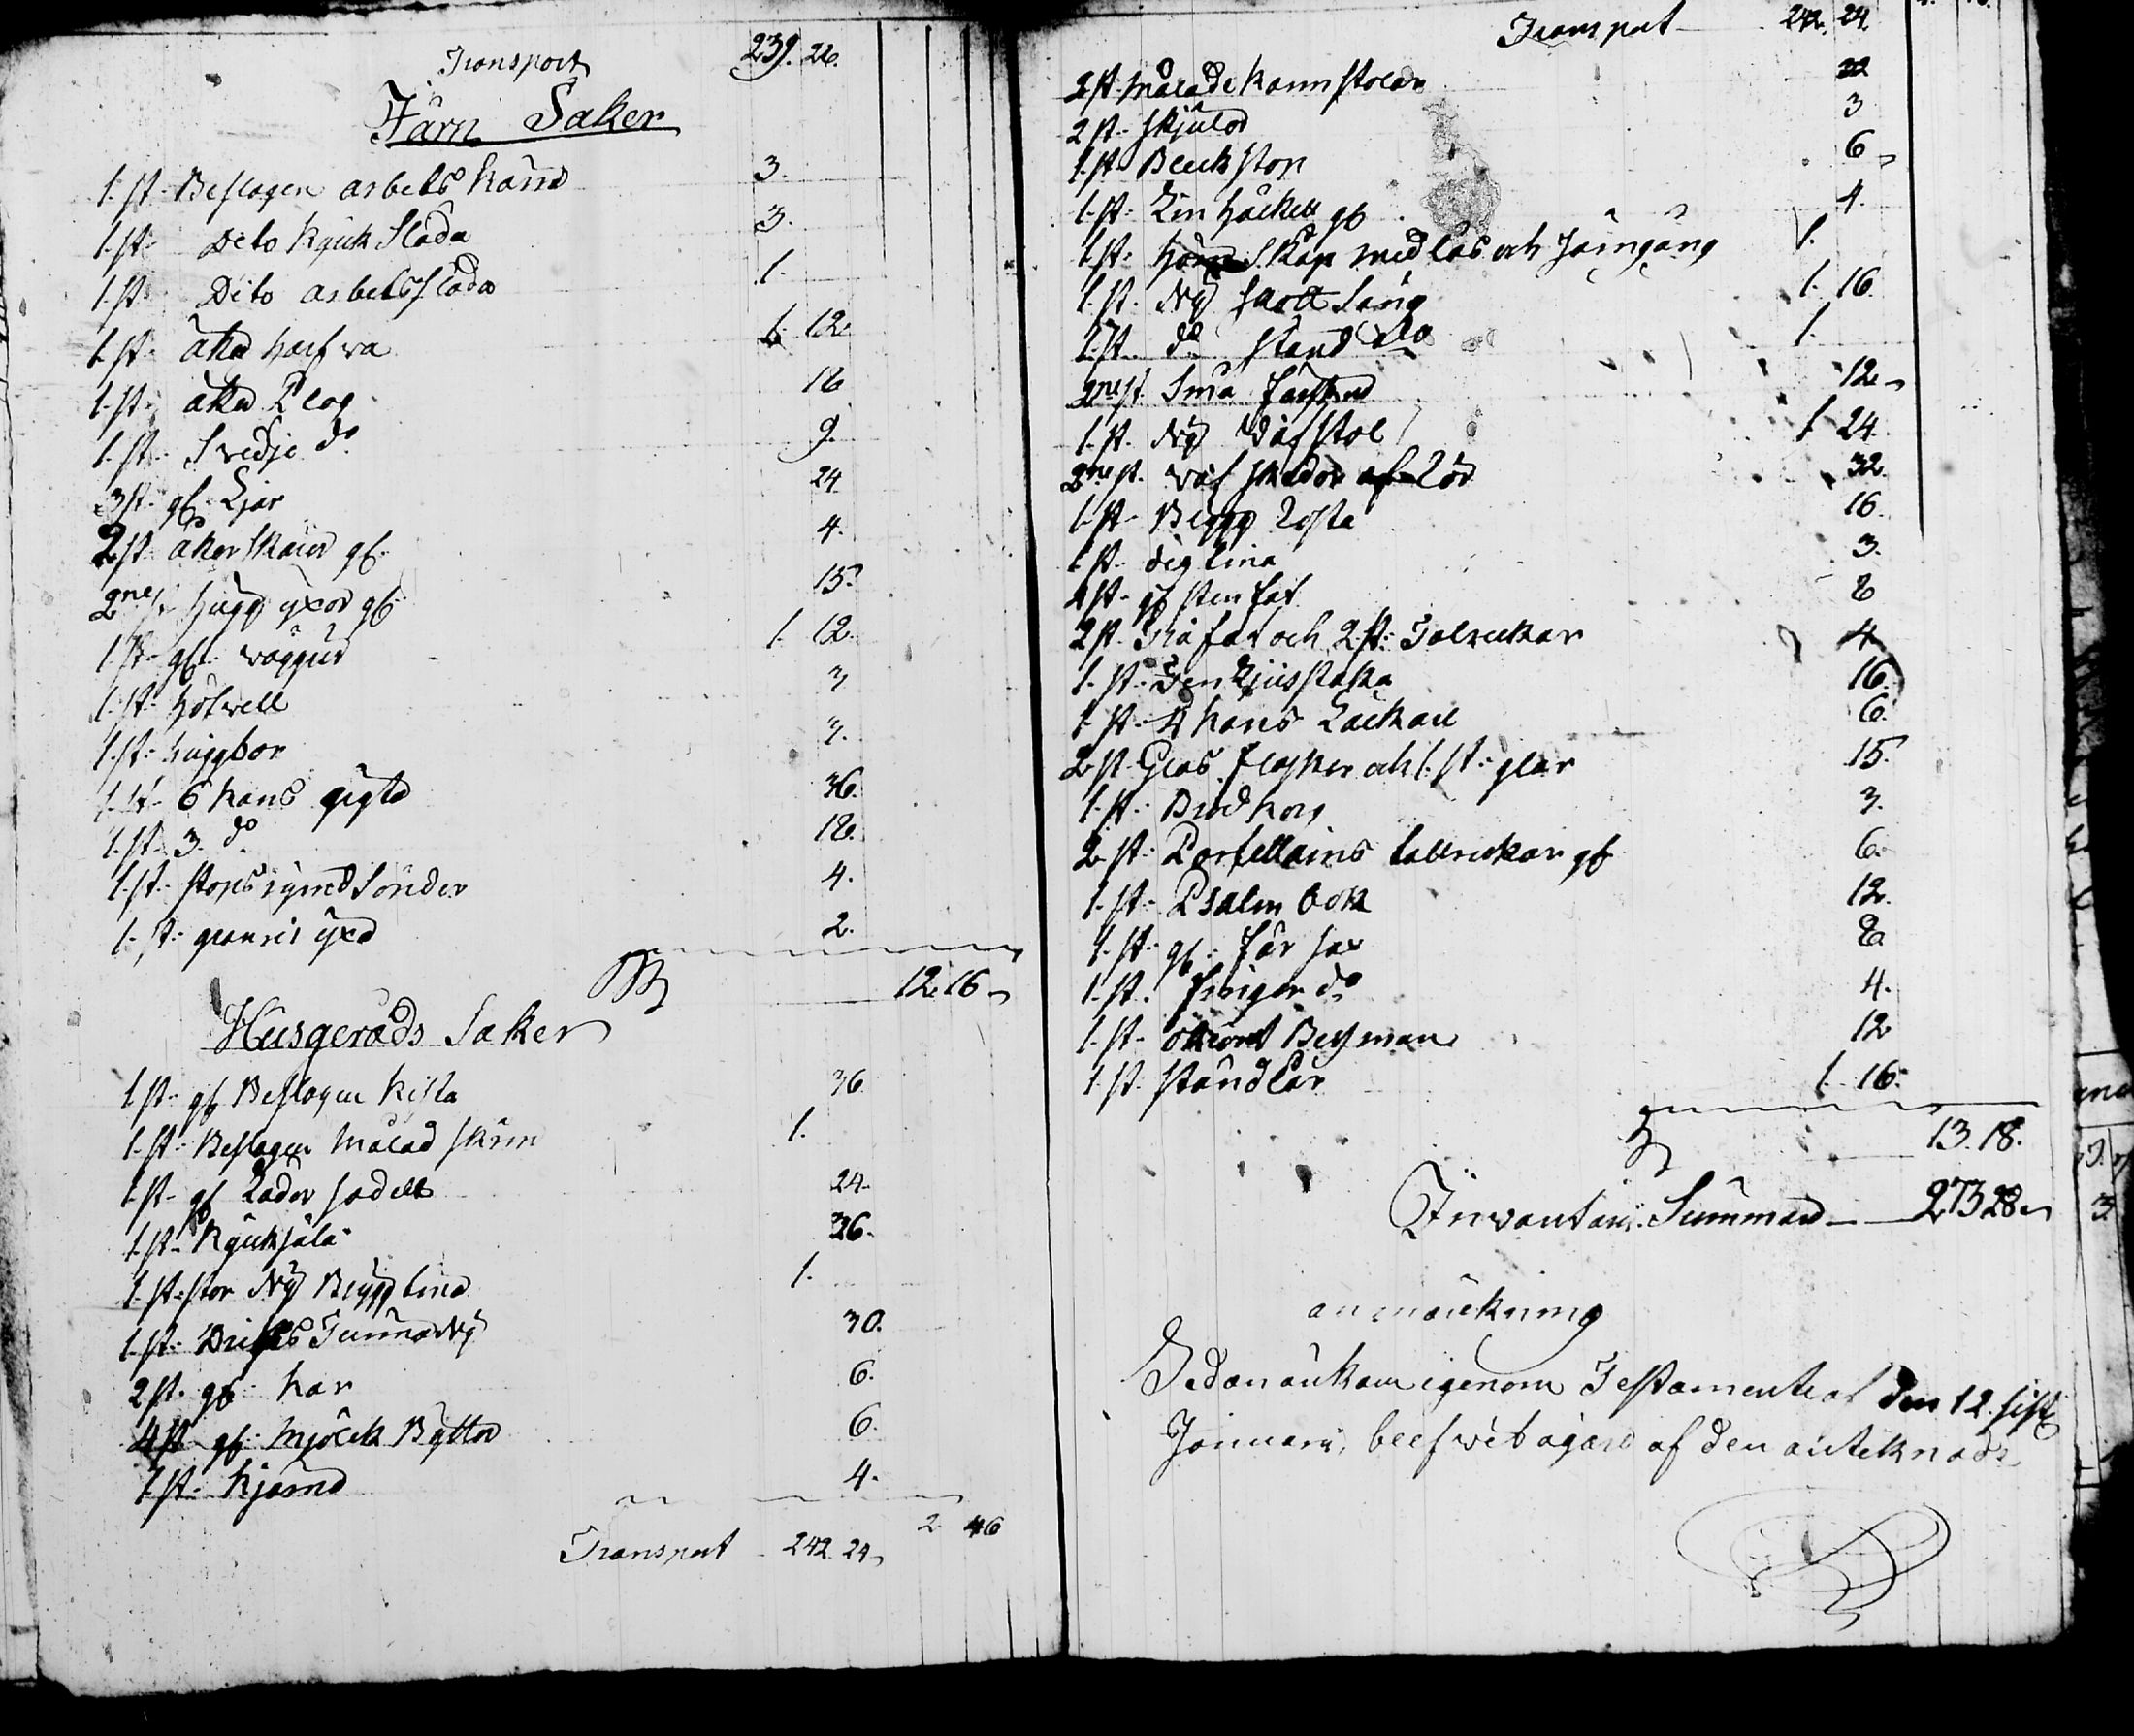 Transport 239. 26.
Järn Saker
1. st. Beslagen arbets kärra 3.
1. st. Dito Kyrk Släda 3.
1. st. Dito arbets släda 1.
1. st. åker harfva 1. 12.
1. st. åker Plog 18
1. st. Svedje do 9.
3 st. gl. Ljar 24
2 st. åker skäror gl. 4.
2ne st. hugg yxor gl. 15.
1 st. gl. väggur 1. 12.
1. st. hofwell 3
1. st. huggbor 3.
1. st. 6 kans gryta 36.
1. st. 3 do 18.
1. st. stops rymd sönder 4.
1. st. granris yxa 2.
12. 16
Husgeråds Saker
1. st. gl Beslagen kista 36
1. st. Beslagen målad skrin 1.
1. st. gl Läder sadell 24.
1. st. Kyrksäla 36.
1. st. stor Ny Brygg tina 1.
1. st. Dricks Tunna Ny 30.
2 st. gl. kar 6.
4 st. gl. Mjölck Byttor 6.
1 st. kjärna 4.
2. 46
Transport 242. 24
Transport 242. 24.
2 st. målade karmstolar 32
2 st. skjulor 3
1. st. Bleckstop 6
1. st. Lin häckla gl. 4.
1. st. Skåp med lås och järngång 1.
1. st. Ny skott Säng 1. 16.
1. st. do stånd do 1.
2ne st. Små 12
1. st. Ny Väfstol 1 24.
2ne st. väf skedar af Rör 32.
1. st. Brygg Rosta 16.
1. st. dig tina 3.
4 st. gl sten fat 8
2 st. Trä fat och 2 st. Talrickar 4
1. st. Jern Ljusstaka 16
1. st. 4 kans 6.
2 st. Glas flasker och 1. st. glas 15.
1. st. Bröd korg 3.
2 st. Porsellains tallrickar gl 6.
1. st. Psalm bok 12.
1. st. gl. får sax 8
1. st. finger do 4.
1. st. Besman 12
1. st. ståndlår 1. 16.
13. 18.
Inventarii Summan 273 28
anmärckning
Sedan igenom Testamente af den 12. sist
Januarii, blefwit ägare af den antecknade